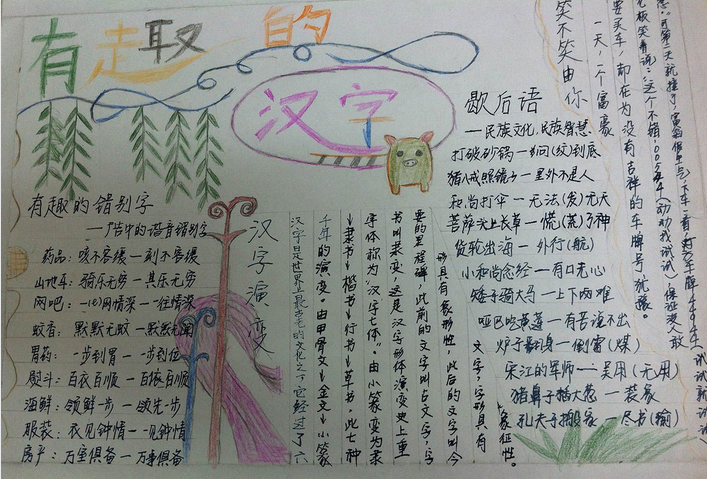 有趣的
汉字
有趣的错别字
——广告中的谐音错别字
药品：咳不容缓—刻不容缓
山地车：骑乐无穷—其乐无穷
网吧：一(e)网情深—一往情深
蚊香：默默无蚊—默默无闻
胃药：一步到胃—一步到位
熨斗：百衣百顺—百依百顺
海鲜：领鲜一步—领先一步
服装：衣见钟情—一见钟情
房产：万室俱备—万事俱备
汉字演变
汉字是世界上最古老的文化之一，它经过了六
千年的演变。由甲骨文↓金文↓小篆
↓隶书↓楷书↓行书↓草书，此七种
字体称为“汉字七体”。由小篆变为隶
书叫隶变。这是汉字形体演变史上重
要的里程碑。此前的文字叫古文字，字
形具有象形性，此后的文字叫今
文字，字形具有
象征性。
歇后语
——民族文化,民族智慧
打破砂锅—问(纹)到底
猪八戒照镜子—里外不是人
和尚打伞—无法(发)无天
菩萨头上长草—慌(荒)了神
货轮出海—外行(航)
小和尚念经—有口无心
矮子骑大马—上下两难
哑巴吃黄莲—有苦说不出
炉子翻身—倒霉(煤)
宋江的军师—吴用(无用)
猪鼻子插大葱—装象
孔夫子搬家—尽书(输)
笑不笑由你
一天，一个富豪
要买车，却在为没有吉祥的车牌号犹豫。
老板笑着说：“这个不错：00544(动动我试试)，保证没人敢